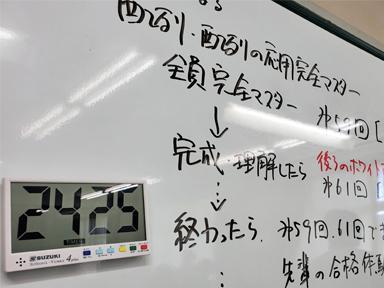 配列・配列の応用完全マスター
全員完全マスター
↓
第59回[
完成・理解したら
後ろのホワイト
第61回[
↓
終わったら、第59回、61回でき
先輩の合格体験
24 25
SUZUKI
4 plus